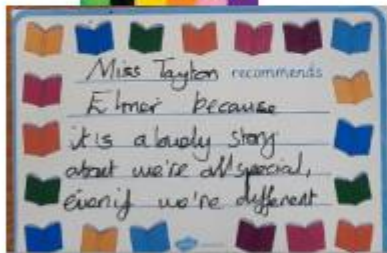 Miss Taylton recommends
Elmer because
it is a lovely story
about we're all special,
even if we're different